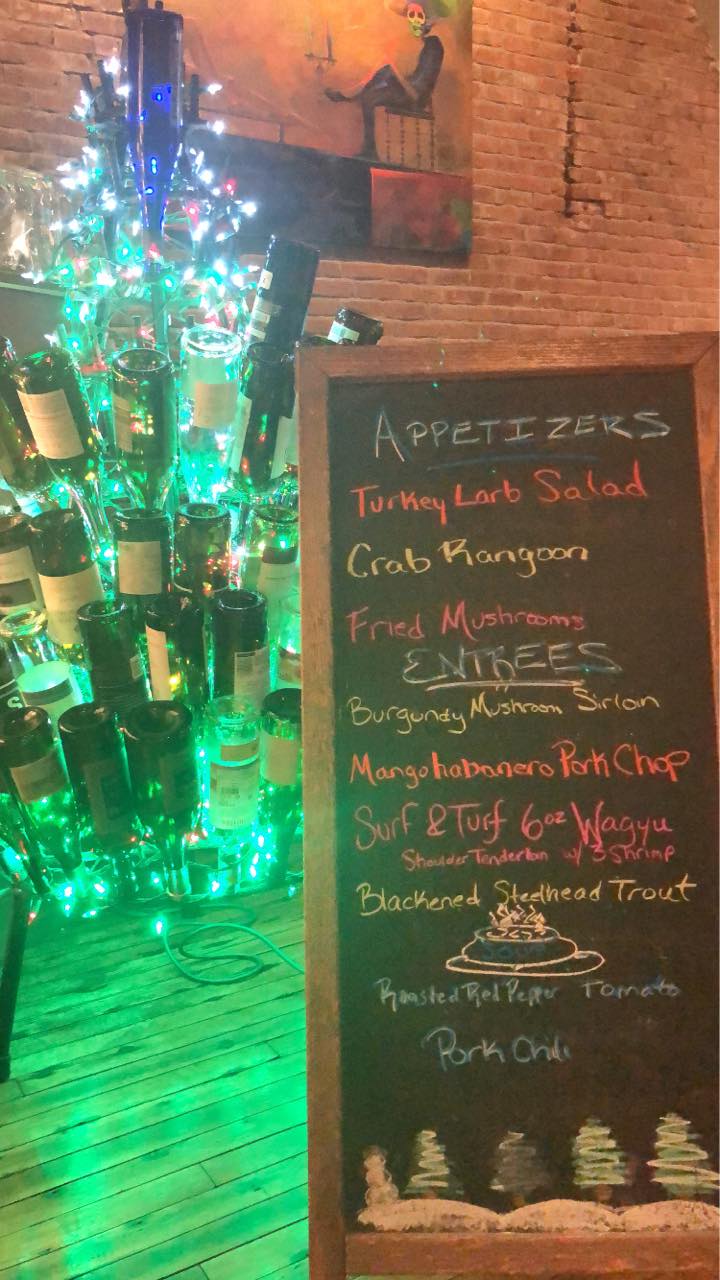 APPETIZERS
Turkey Larb Salad
Crab Rangoon
Fried Mushrooms
ENTREES
Burgundy Mushroom Sirloin
Mango habanero Pork Chop
Surf & Turf 6oz Wagyu
Shoulder Tenderloin w/ 3 Shrimp
Blackened Steelhead Trout
Roasted Red Pepper Tomato
Pork Chili